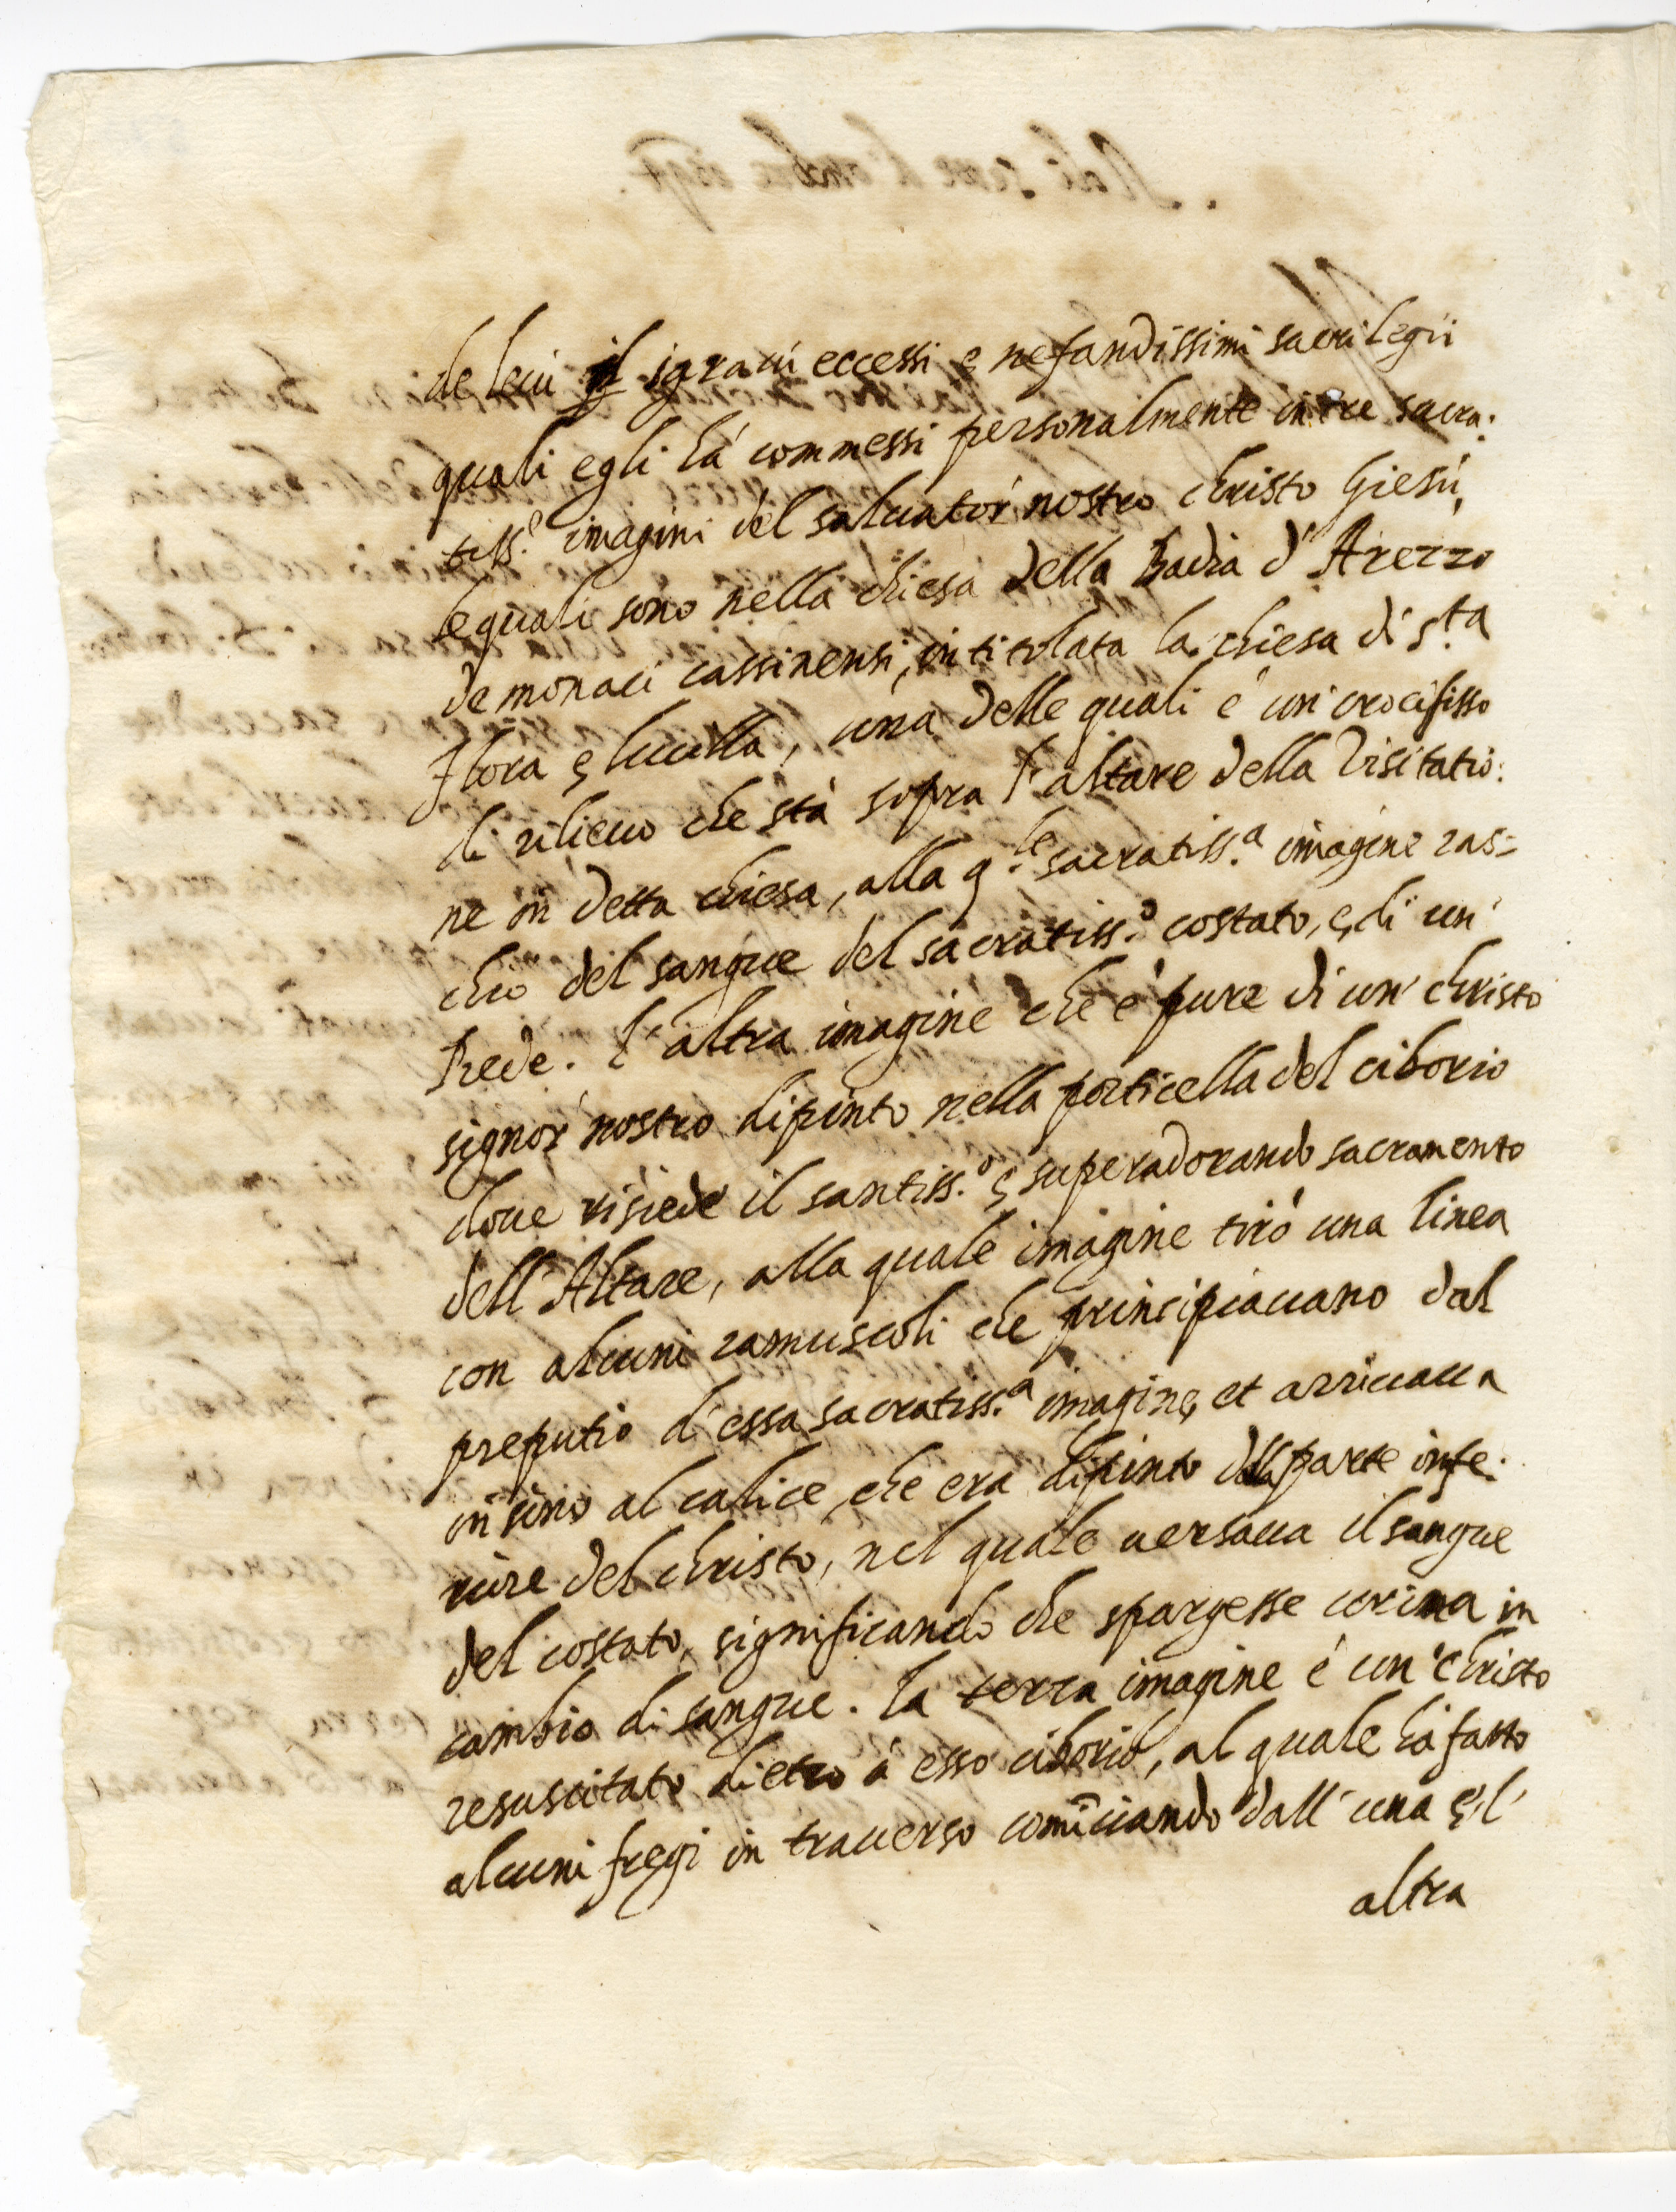 de lui sgraui eccessi e nefandissimi sacrilegii
quali egli hà commessi personalmente in tre sacra:
tiss.e imagini del saluator nostro christo Giesù,
le quali sono nella chiesa della Badia d'Arezzo
de monaci cassinensi, intitolata la chiesa di S.ta
Flora e lucilla, una delle quali è un' crocifisso
di rilieuo che stà sopra l'altare della Visitatio:
ne in detta chiesa, alla q.le sacratiss.a imagine ras=
chiò del sangue del sacratiss.o costato, e di un'
Piede. l'altra imagine che è pure di un' christo
signor' nostro dipinto nella porticella del ciborio
doue risiede il santiss.o e superadorando sacramento
dell'Altare, alla quale imagine tirò una linea
con alcuni ramuscoli che principiauano dal
preputio d'essa sacratiss.a imagine, et arriuaua
in sino al calice, che era dipinto dalla parte infe:
riore del christo, nel quale uersaua il sangue
del costato, significando che spargesse urina in
cambio di sangue. la terza imagine è un' christo
resuscitato dietro à esso ciborio, al quale hà fatto
alcuni fregi in trauerso comīciando dall'una e l'
altra